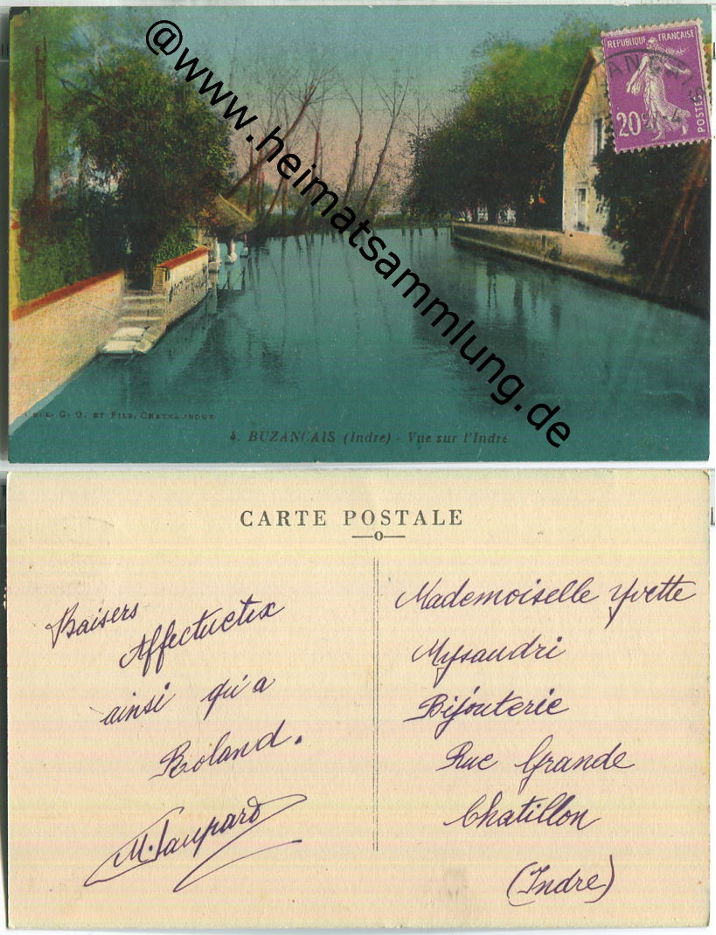 @www.heimatsammlung.de
REPUBLIQUE FRANÇAISE
20c
POSTES
4. BUZANÇAIS (Indre) - Vue sur l'Indre
CARTE POSTALE
Baisers
Affectueux
ainsi qu'a
Roland.
Mademoiselle Yvette
Bijouterie
Rue Grande
Chatillon
(Indre)